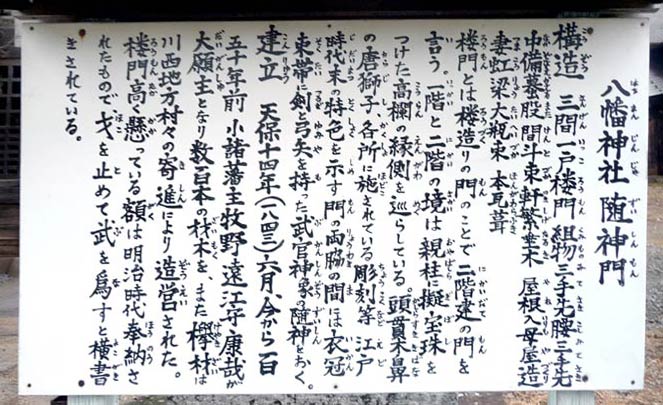 八幡神社 随神門
構造 三間一戸楼門 組物三手先腰三手先
中備蟇股間斗束軒繁垂木 屋根入母屋造
妻虹梁大瓶束 本瓦葺
楼門とは楼造りの門のことで二階建の門を
言う。一階と二階の境は親柱に擬宝珠を
つけた高欄の縁側を巡らしている。頭貫木鼻
の唐獅子各所に施されている彫刻等 江戸
時代末の特色を示す門の両脇の間には衣冠
束帯に剣と弓矢を持った武官神象の随神をおく。
建立 天保十四年(一八四三)六月、今から百
五十年前 小諸藩主牧野遠江守康哉が
大願主となり数百本の材木を、また欅材は
川西地方村々の寄進により造営された。
楼門高く懸っている額は明治時代奉納さ
れたもので戈を止めて、武を爲すと横書
きされている。